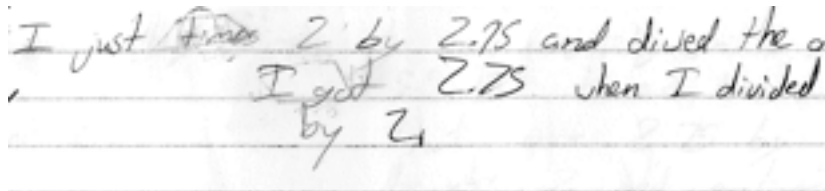 I just times 2 by 2.75 and dived the
I got 2.75 when I divided
by 2.